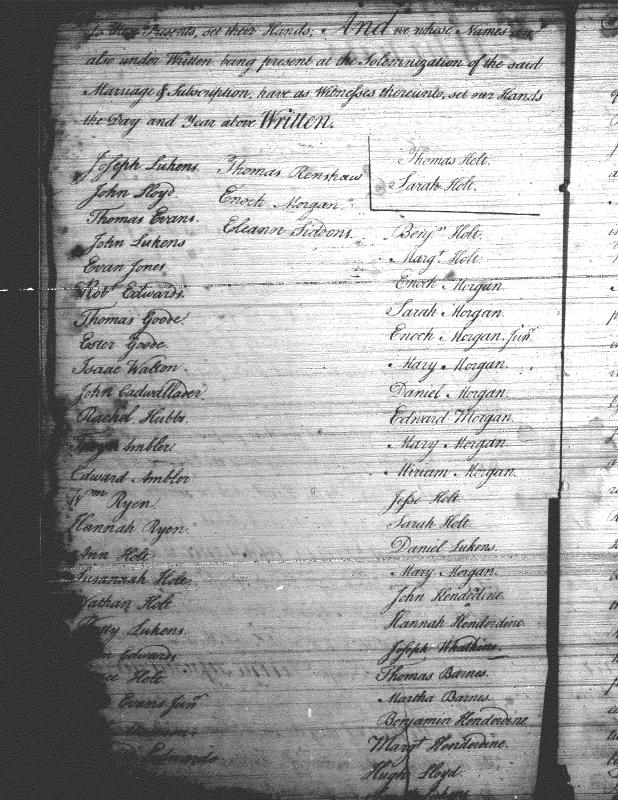 to these Presents, set their Hands; And we whose Names are
also under Written being present at the Solemnization of the said
Marriage & Subscription, have as Witnesses thereunto, set our Hands
the Day and Year above Written.
Joseph Lukens
John Lloyd
Thomas Evans.
John Lukens
Evan Jones
Robt Edwards
Thomas Goode
Ester Goode
Isaac Walton
John Cadwallader
Rachel Hubbs
Ambler
Edward Ambler
Wm Ryen.
Hannah Ryen.
Ann Holt
Susannah Holt
Nathan Holt
Lukens
Edwards
Holt
Evans Junr
Edwards
Thomas Renshaw
Enoch Morgan
Eleanor Siddons
Thomas Holt.
Sarah Holt.
Benjn Holt.
Margt Holt.
Enoch Morgan
Sarah Morgan.
Enoch Morgan Junr
Mary Morgan.
Daniel Morgan.
Edward Morgan.
Mary Morgan.
Miriam Morgan.
Jesse Holt.
Sarah Holt
Daniel Lukens.
Mary Morgan.
John Henderdine
Hannah Henderdine
Joseph Whatkins.
Thomas Barnes.
Martha Barnes.
Benjamin Henderdine
Margt Henderdine.
Hugh Lloyd.